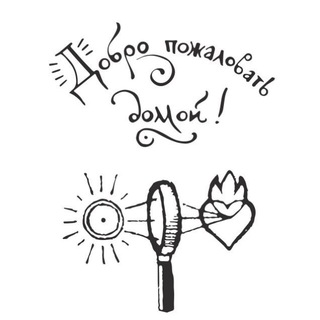 Добро пожаловать
домой!